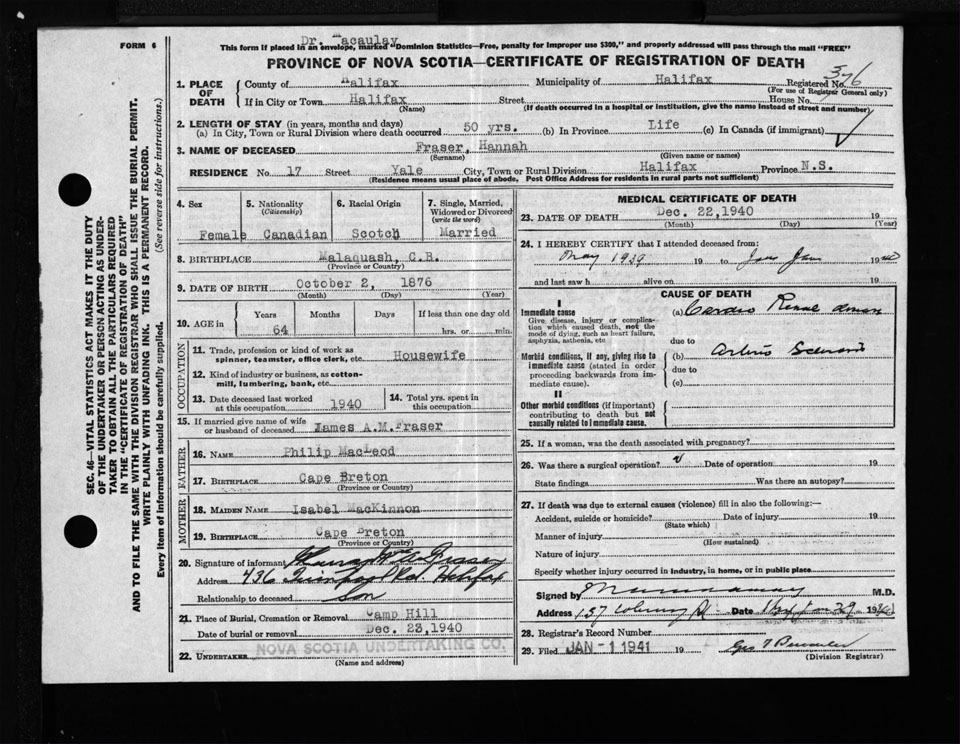 Dr. Macaulay
FORM 6
This form if placed in an envelope, marked "Dominion Statistics—Free, penalty for improper use $300," and properly addressed will pass through the mail "FREE"
PROVINCE OF NOVA SCOTIA—CERTIFICATE OF REGISTRATION OF DEATH
SEC. 46—VITAL STATISTICS ACT MAKES IT THE DUTY
OF THE UNDERTAKER OR PERSON ACTING AS UNDER-
TAKER TO OBTAIN ALL THE PARTICULARS REQUIRED
IN THE "CERTIFICATE OF REGISTRATION OF DEATH"
AND TO FILE THE SAME WITH THE DIVISION REGISTRAR WHO SHALL ISSUE THE BURIAL PERMIT.
WRITE PLAINLY WITH UNFADING INK. THIS IS A PERMANENT RECORD.
Every item of information should be carefully supplied. (See reverse side for instructions.)
1. PLACE OF DEATH County of Halifax Municipality of Halifax Registered No. 376
(For use of Registrar General only)
If in City or Town Halifax Street House No.
(Name) (If death occurred in a hospital or institution, give the name instead of street and number)
2. LENGTH OF STAY (in years, months and days)
(a) In City, Town or Rural Division where death occurred 50 yrs. (b) In Province Life (c) In Canada (if immigrant)
3. NAME OF DECEASED Fraser, Hannah
(Surname) (Given name or names)
RESIDENCE No. 17 Street Yale City, Town or Rural Division Halifax Province N.S.
(Residence means usual place of abode. Post Office Address for residents in rural parts not sufficient)
4. Sex 5. Nationality (Citizenship) 6. Racial Origin 7. Single, Married, Widowed or Divorced (write the word)
Female Canadian Scotch Married
8. BIRTHPLACE Malaquash, C.B.
(Province or Country)
9. DATE OF BIRTH October 2, 1876
(Month) (Day) (Year)
10. AGE in Years Months Days If less than one day old
64 hrs. or min.
OCCUPATION
11. Trade, profession or kind of work as spinner, teamster, office clerk, etc. Housewife
12. Kind of industry or business, as cotton-mill, lumbering, bank, etc.
13. Date deceased last worked at this occupation 1940 14. Total yrs. spent in this occupation
15. If married give name of wife or husband of deceased James A.M. Fraser
FATHER
16. NAME Philip MacLeod
17. BIRTHPLACE Cape Breton
(Province or Country)
MOTHER
18. MAIDEN NAME Isabel MacKinnon
19. BIRTHPLACE Cape Breton
(Province or Country)
20. Signature of informant Fraser
Address 436 Rd. Halifax
Relationship to deceased Son
21. Place of Burial, Cremation or Removal Camp Hill
Date of burial or removal Dec. 23, 1940
22. UNDERTAKER NOVA SCOTIA UNDERTAKING CO.
(Name and address)
MEDICAL CERTIFICATE OF DEATH
23. DATE OF DEATH Dec. 22, 1940 19
(Month) (Day) (Year)
24. I HEREBY CERTIFY that I attended deceased from:
May 1939 19 to Jan 1940
and last saw h alive on 19
CAUSE OF DEATH
I
Immediate cause (a) Cardio Renal
Give disease, injury or complication which caused death, not the mode of dying, such as heart failure, asphyxia, asthenia, etc
due to
Morbid conditions, if any, giving rise to immediate cause (stated in order proceeding backwards from immediate cause). (b) Arterio
due to
(c)
II
Other morbid conditions (if important) contributing to death but not causally related to immediate cause.
25. If a woman, was the death associated with pregnancy?
26. Was there a surgical operation? Date of operation 19
State findings Was there an autopsy?
27. If death was due to external causes (violence) fill in also the following:—
Accident, suicide or homicide? Date of injury 19
(State which)
Manner of injury
(How sustained)
Nature of injury
Specify whether injury occurred in industry, in home, or in public place
Signed by M.D.
Address 157 St Date 29 1940
28. Registrar's Record Number
29. Filed JAN - 1 1941 19
(Division Registrar)